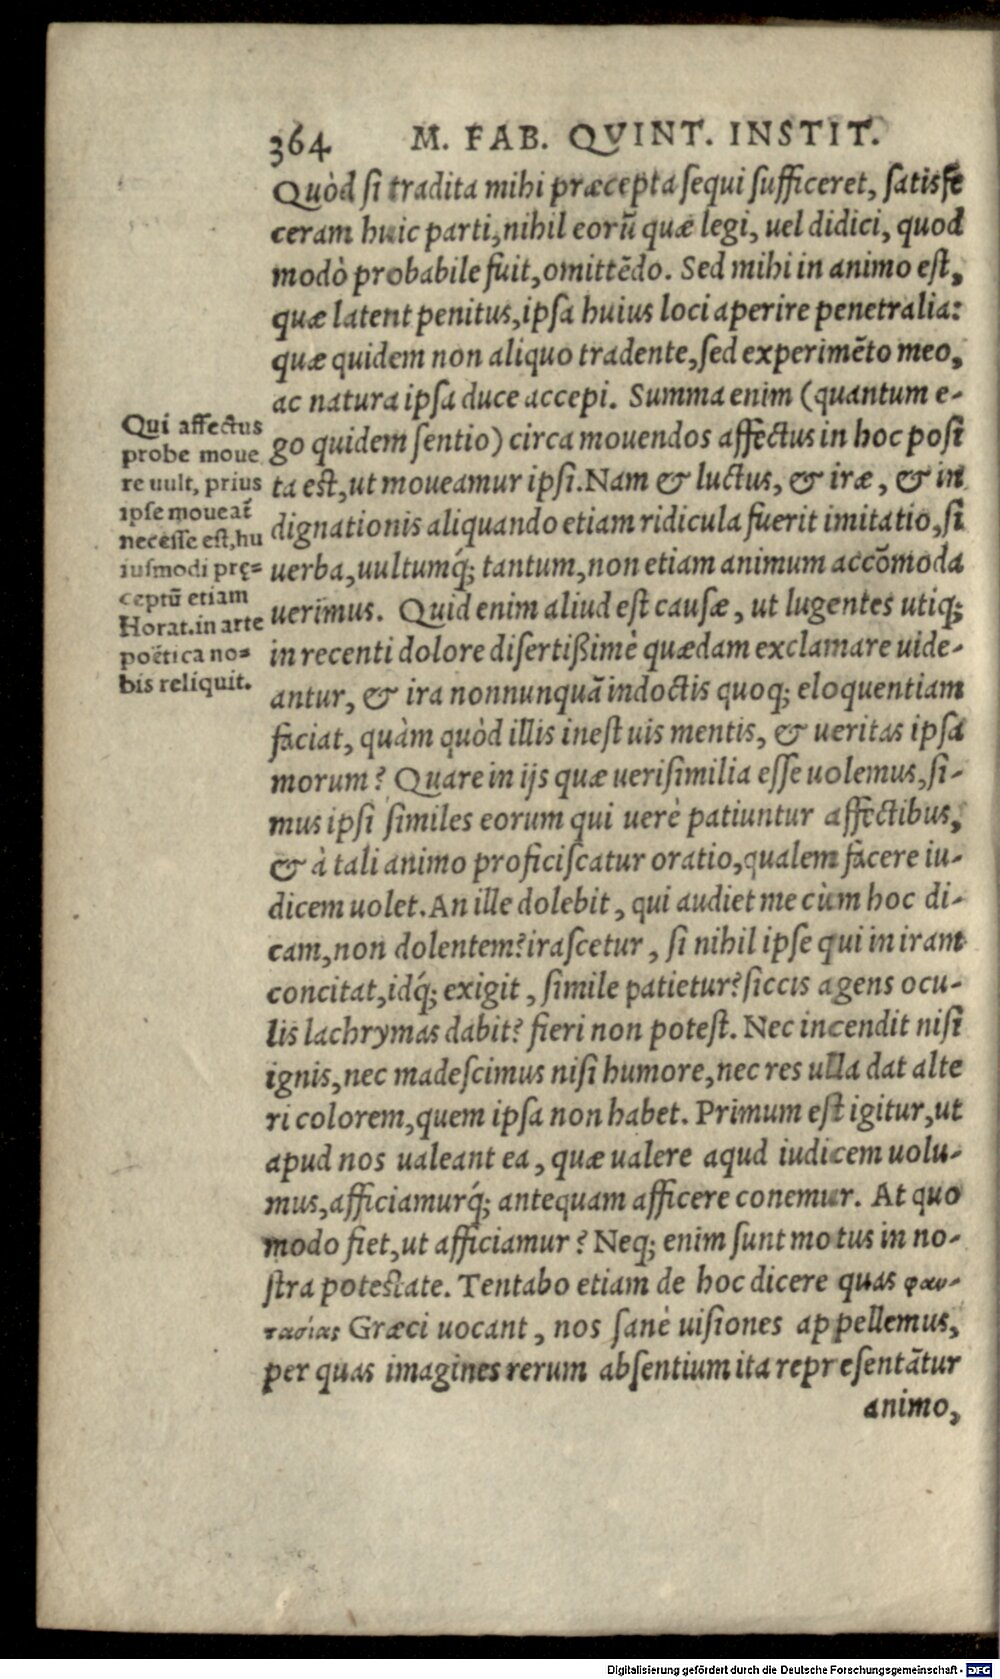 364 M. FAB. QVINT. INSTIT.
Quòd ſi tradita mihi præcepta ſequi ſufficeret, ſatisfe
ceram huic parti, nihil eorũ quæ legi, uel didici, quod
modò probabile fuit, omittẽdo. Sed mihi in animo eſt,
quæ latent penitus, ipſa huius loci aperire penetralia:
quæ quidem non aliquo tradente, ſed experimẽto meo,
ac natura ipſa duce accepi. Summa enim (quantum e-
go quidem ſentio) circa mouendos affectus in hoc poſi
ta eſt, ut moueamur ipſi. Nam & luctus, & iræ, & in
dignationis aliquando etiam ridicula fuerit imitatio, ſi
uerba, uultumq́; tantum, non etiam animum accõmoda
uerimus. Quid enim aliud eſt cauſæ, ut lugentes utiq;
in recenti dolore diſertißimè quædam exclamare uide-
antur, & ira nonnunquã indoctis quoq; eloquentiam
faciat, quàm quòd illis ineſt uis mentis, & ueritas ipſa
morum? Quare in ijs quæ ueriſimilia eſſe uolemus, ſi-
mus ipſi ſimiles eorum qui uerè patiuntur affectibus,
& à tali animo proficiſcatur oratio, qualem facere iu-
dicem uolet. An ille dolebit, qui audiet me cùm hoc di-
cam, non dolentem? iraſcetur, ſi nihil ipſe qui in iram
concitat, idq́; exigit, ſimile patietur? ſiccis agens ocu-
lis lachrymas dabit? fieri non poteſt. Nec incendit niſi
ignis, nec madeſcimus niſi humore, nec res ulla dat alte
ri colorem, quem ipſa non habet. Primum eſt igitur, ut
apud nos ualeant ea, quæ ualere aqud iudicem uolu-
mus, afficiamurq́; antequam afficere conemur. At quo
modo fiet, ut afficiamur? Neq; enim ſunt motus in no-
ſtra poteſtate. Tentabo etiam de hoc dicere quas φαν-
τασίας Græci uocant, nos ſanè uiſiones appellemus,
per quas imagines rerum abſentium ita repreſentãtur
animo,
Qui affectus
probe moue
re uult, prius
ipſe moueat̃
neceſſe eſt, hu
iuſmodi prę-
ceptũ etiam
Horat. in arte
poëtica no-
bis reliquit.
Digitalisierung gefördert durch die Deutsche Forschungsgemeinschaft - DFG